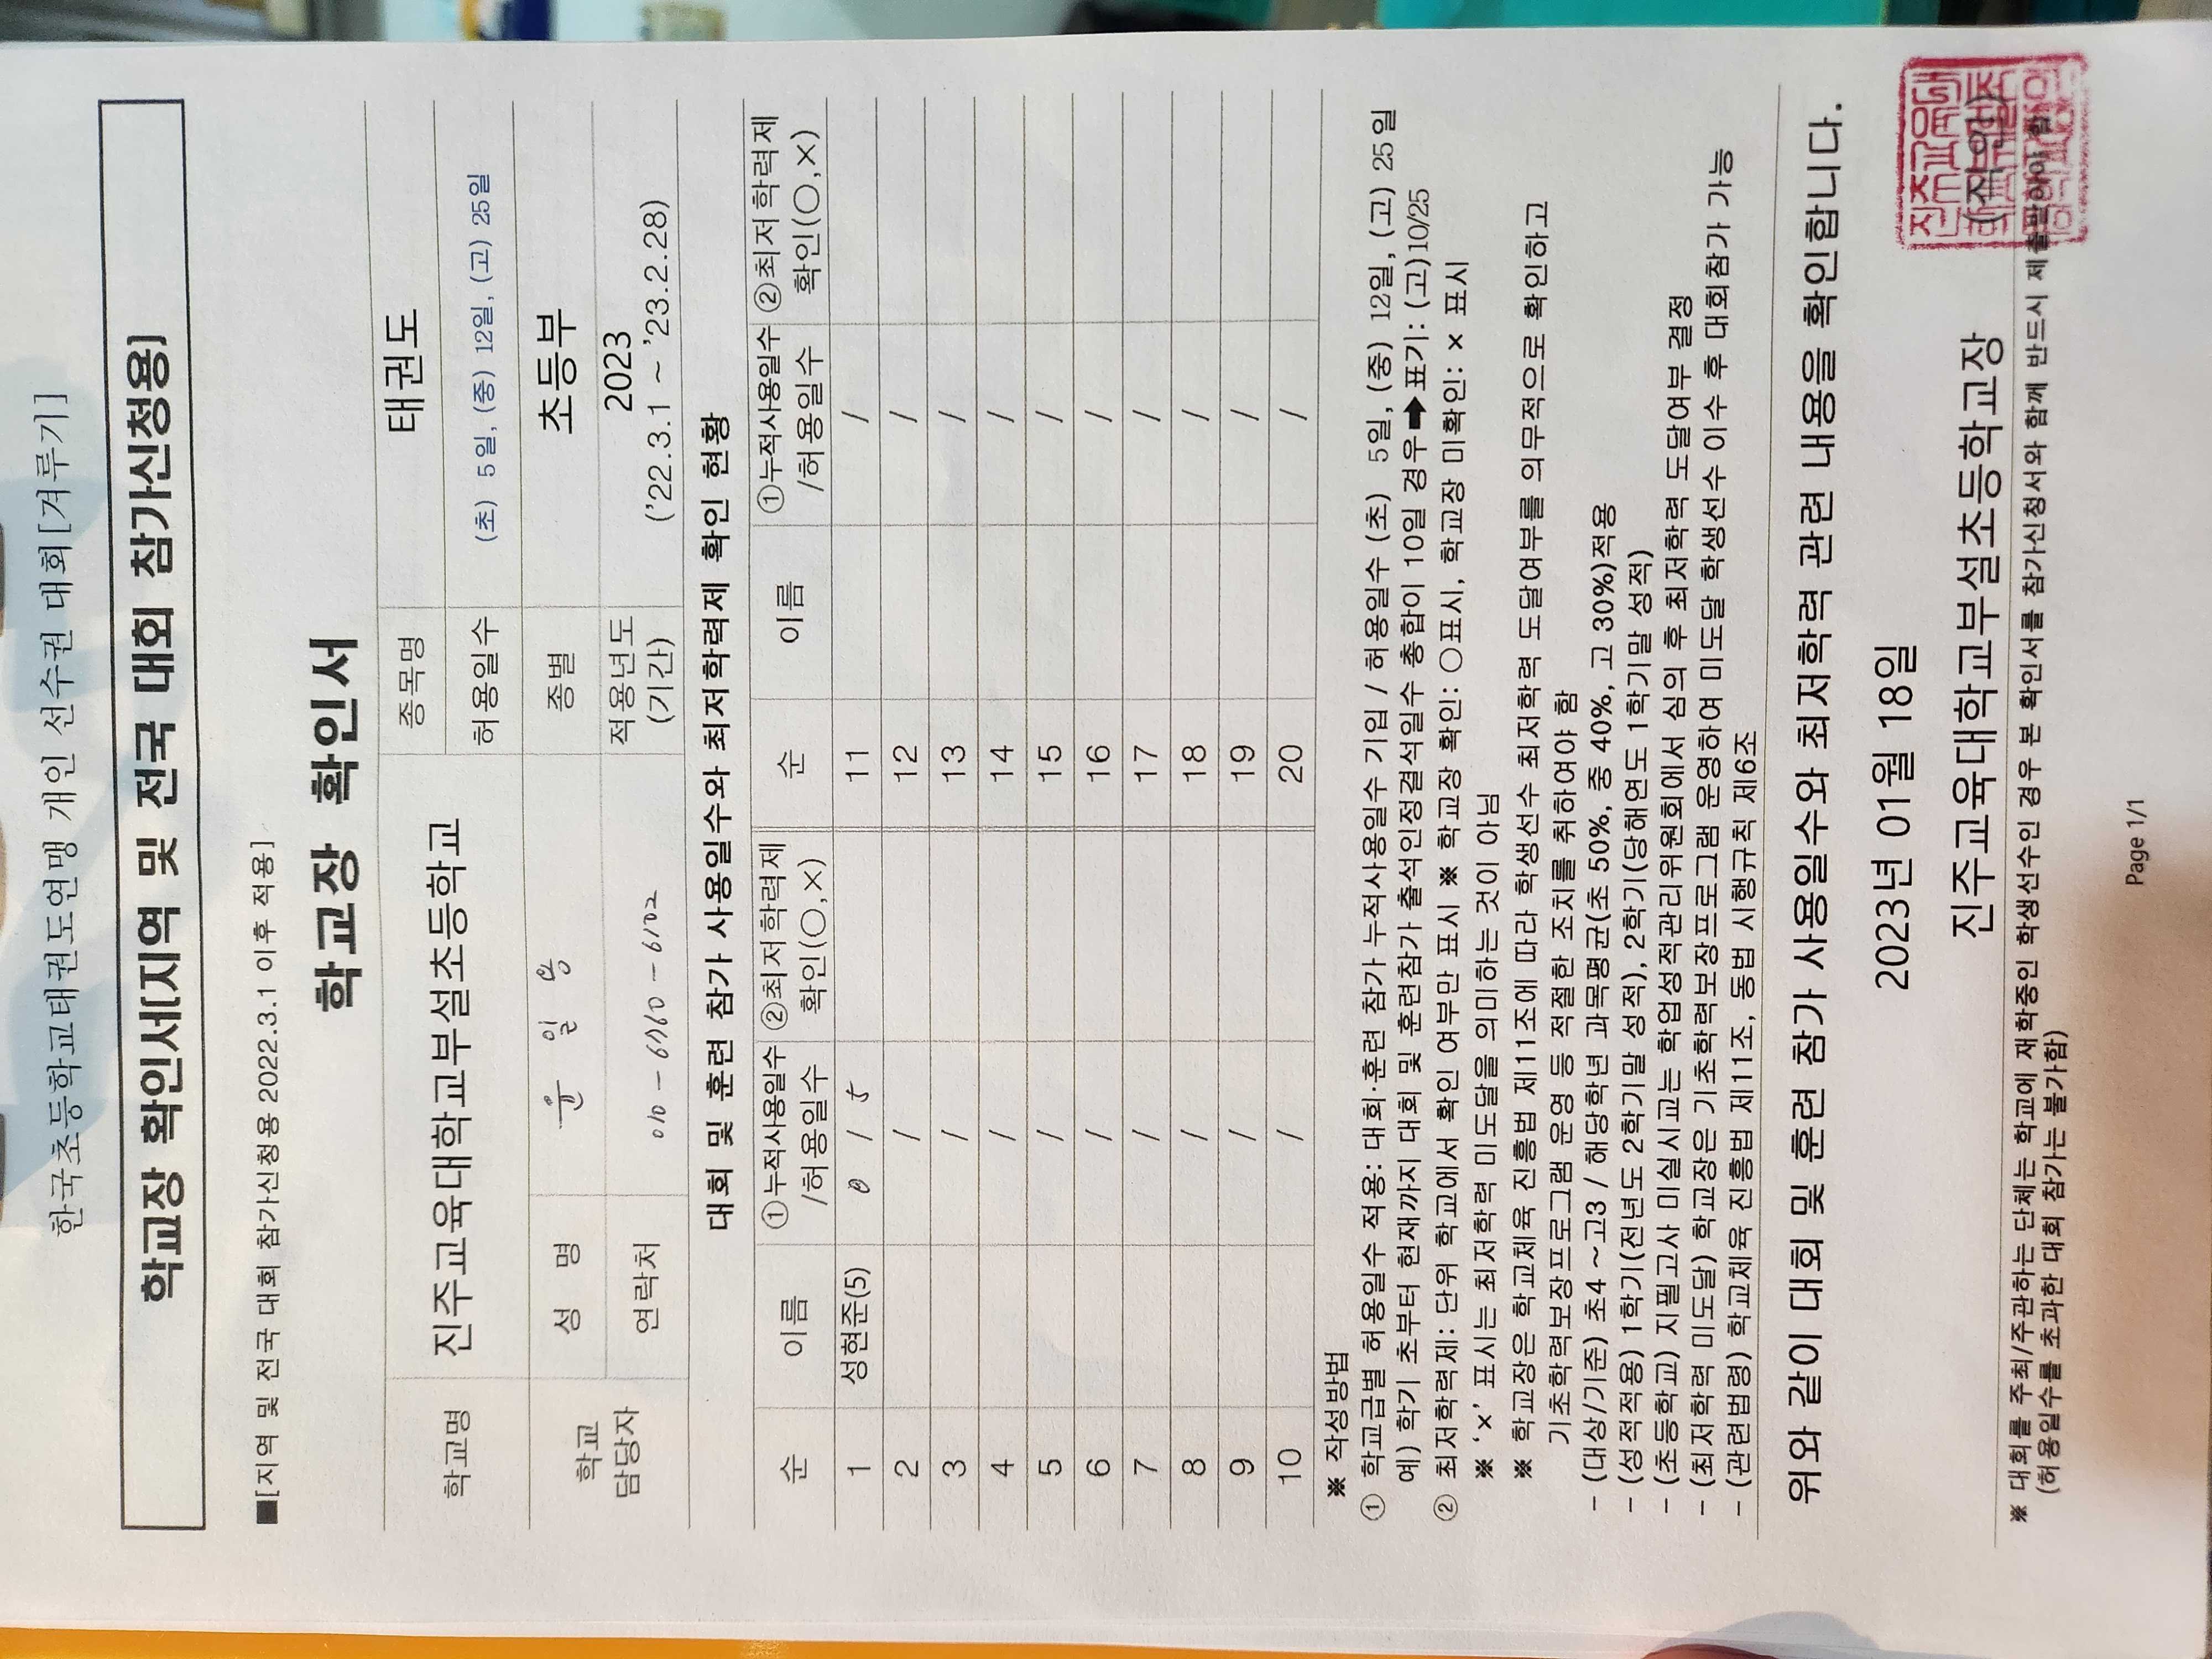 한국초등학교태권도연맹 개인 선수권 대회[겨루기]
학교장 확인서[지역 및 전국 대회 참가신청용]
■[지역 및 전국 대회 참가신청용 2022.3.1 이후 적용]
학교장 확인서
학교명 진주교육대학교부설초등학교 종목명 태권도
허용일수 (초) 5일, (중) 12일, (고) 25일
학교 담당자 성 명 윤 일 종별 초등부
연락처 010 - 6960 - 6102 적용년도 (기간) 2023 ('22.3.1 ~ '23.2.28)
대회 및 훈련 참가 사용일수와 최저학력제 확인 현황
순 이름 ①누적사용일수 /허용일수 ②최저학력제 확인(○,×) 순 이름 ①누적사용일수 /허용일수 ②최저학력제 확인(○,×)
1 성현준(5) 0 / 5 11 /
2 / 12 /
3 / 13 /
4 / 14 /
5 / 15 /
6 / 16 /
7 / 17 /
8 / 18 /
9 / 19 /
10 / 20 /
※ 작성방법
① 학교급별 허용일수 적용: 대회·훈련 참가 누적사용일수 기입 / 허용일수 (초) 5일, (중) 12일, (고) 25일
예) 학기 초부터 현재까지 대회 및 훈련참가 출석인정결석일수 총합이 10일 경우 ➡ 표기: (고)10/25
② 최저학력제: 단위 학교에서 확인 여부만 표시 ※ 학교장 확인: ○표시, 학교장 미확인: × 표시
※ '×' 표시는 최저학력 미도달을 의미하는 것이 아님
※ 학교장은 학교체육 진흥법 제11조에 따라 학생선수 최저학력 도달여부를 의무적으로 확인하고
기초학력보장프로그램 운영 등 적절한 조치를 취하여야 함
- (대상/기준) 초4 ~고3 / 해당학년 과목평균(초 50%, 중 40%, 고 30%)적용
- (성적적용) 1학기(전년도 2학기말 성적), 2학기(당해연도 1학기말 성적)
- (초등학교) 지필고사 미실시교는 학업성적관리위원회에서 심의 후 최저학력 도달여부 결정
- (최저학력 미도달) 학교장은 기초학력보장프로그램 운영하여 미도달 학생선수 이수 후 대회참가 가능
- (관련법령) 학교체육 진흥법 제11조, 동법 시행규칙 제6조
위와 같이 대회 및 훈련 참가 사용일수와 최저학력 관련 내용을 확인합니다.
2023년 01월 18일
진주교육대학교부설초등학교장 (직인)
※ 대회를 주최/주관하는 단체는 학교에 재학중인 학생선수인 경우 본 확인서를 참가신청서와 함께 반드시 제출받아야 함
(허용일수를 초과한 대회 참가는 불가함)
Page 1/1